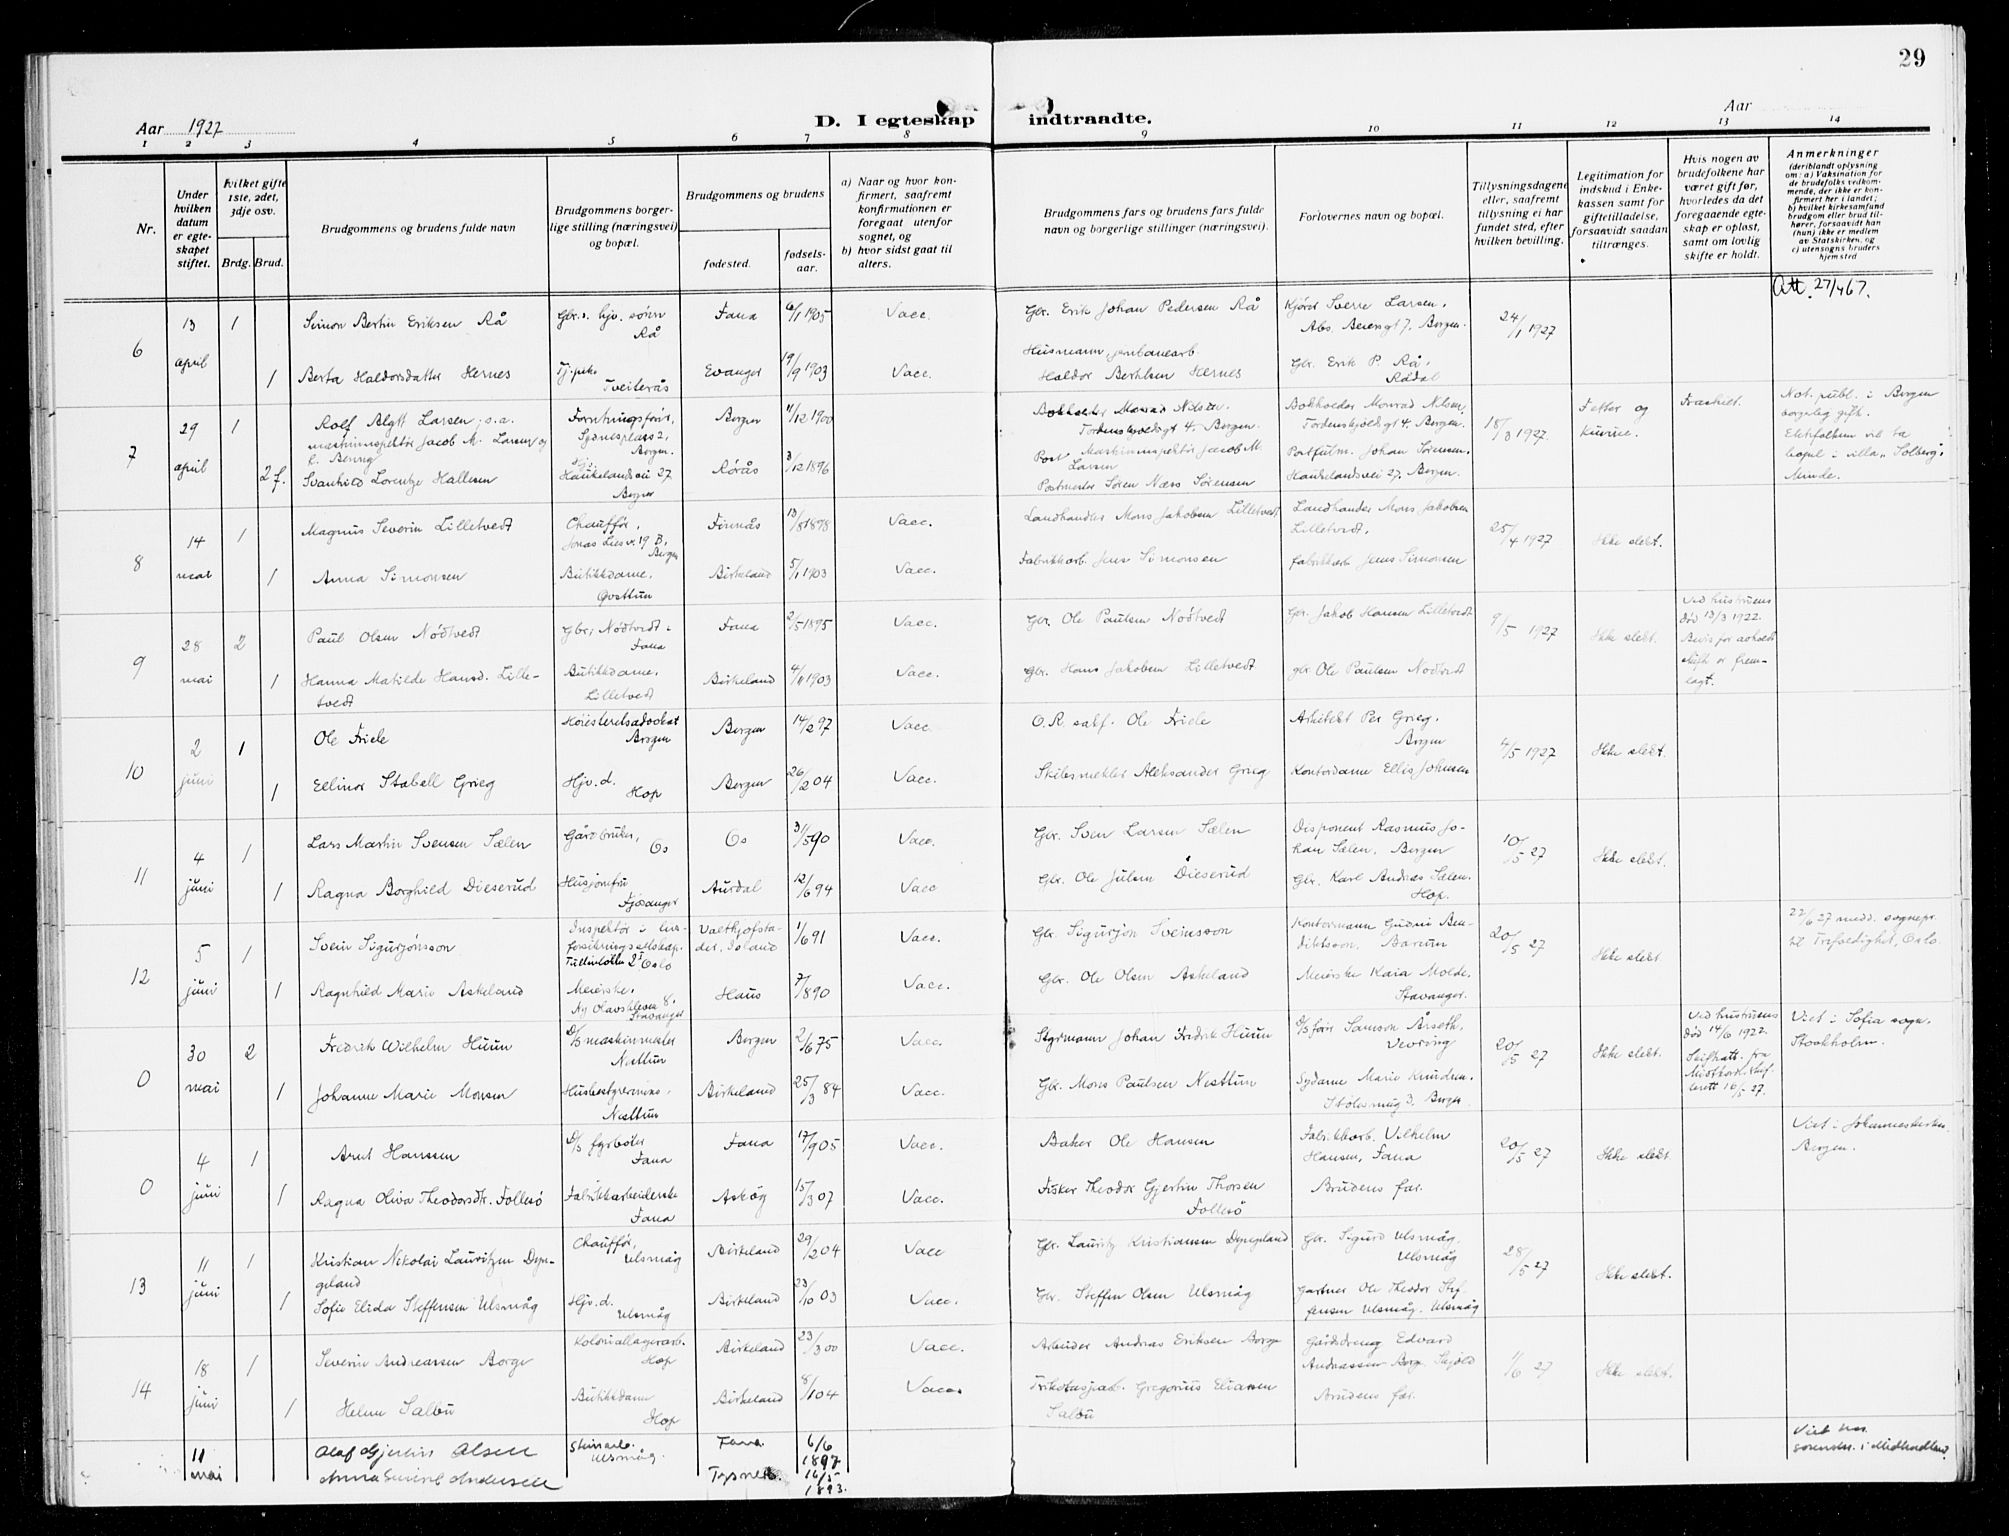 29
Aar 1927
D. I egteskap indtraadte.
Aar
1 2 3 4 5 6 7 8 9 10 11 12 13 14
Nr.
Under hvilken datum er egteskapet stiftet.
Hvilket gifte 1ste, 2det, 3dje osv.
Brdg. Brud.
Brudgommens og brudens fulde navn
Brudgommens borgerlige stilling (næringsvei) og bopæl.
Brudgommens og brudens
fødested.
fødselsaar.
a) Naar og hvor konfirmert, saafremt konfirmationen er foregaat utenfor sognet, og
b) hvor sidst gaat til alters.
Brudgommens fars og brudens fars fulde navn og borgerlige stillinger (næringsvei).
Forlovernes navn og bopæl.
Tillysningsdagene eller, saafremt tillysning ei har fundet sted, efter hvilken bevilling.
Legitimation for indskud i Enkekassen samt for giftetilladelse, forsaavidt saadan tiltrænges.
Hvis nogen av brudefolkene har været gift før, hvorledes da det foregaaende egteskap er opløst, samt om lovlig skifte er holdt.
Anmerkninger
(deriblandt oplysning om: a) Vaksination for de brudefolks vedkommende, der ikke er konfirmert her i landet;
b) hvilket kirkesamfund brudgom eller brud tilhører, forsaavidt han (hun) ikke er medlem av Statskirken, og
c) utensogns bruders hjemsted
Att. 27/467.
6 13 april 1 Simon Bertin Eriksen Rå Gbr. s. hjv. sønn Rå Fana 6/1 1905 Vacc. Gbr. Erik Johan Pedersen Rå Kjører Sverre Larsen, Abs. Beiersgt 7. Bergen. 24/1 1927
1 Berta Haldorsdatter Hernes Tj.pike Tveiterås Evanger 19/9 1903 Vacc. Husmann, jernbanearb Haldor Berthsen Hernes Gbr. Erik P. Rå, Rådal
7 29 april 1 Rolf Blytt Larsen, s.a. maskininspektør Jacob M. Larsen og f. Bennig Forretningsfører, Sydnesplass 2, Bergen. Bergen 11/12 1900 Bokholder Monrad Nilsen Tordenskjoldsgt 4. Bergen. Bokholder Monrad Nilsen, Tordenskjoldsgt 4. Bergen. 18/3 1927. Fetter og kusine. Fraskilt. Not. publ. i Bergen borgerlig gift. Ektefolkene vil ta bopel i villa "Solberg", Minde.
2 f. Svanhild Lorentze Hallesen Haukelandsvei 27 Bergen Rørås 3/12 1896 Post Maskininspektør Jacob M. Larsen Postmester Søren Næss Sørensen Postfulm. Johan Sørensen, Haukelandsvei 27, Bergen.
8 14 mai 1 Magnus Severin Lilletvedt Chauffør, Jonas Liesv. 19 B, Bergen Finnås 13/8 1898 Vacc. Landhandler Mons Jakobsen Lilletvedt Landhandler Mons Jakobsen Lilletvedt. 25/4 1927 Ikke slekt.
1 Anna Simonsen Butikkdame. Øvsttun Birkeland 5/1 1903 Vacc. Fabrikkarb. Jens Simonsen Fabrikkarb Jens Simonsen
9 28 mai 2 Paul Olsen Nødtvedt Gbr, Nødtvedt i Fana Fana 2/5 1895 Vacc. Gbr. Ole Paulsen Nødtvedt Gbr. Jakob Hansen Lilletvedt 9/5 1927 Ikke slekt. Ved hustruens død 13/3 1922. Bevis for avholdt skifte er fremlagt.
1 Hanna Matilde Hansd. Lilletvedt Butikkdame, Lilletvedt Birkeland 4/11 1903 Vacc. Gbr. Hans Jakobsen Lilletvedt gbr Ole Paulsen Nødtvedt
10 2 juni 1 Ole Friele Høiesteretsadvokat Bergen Bergen 14/2 97 Vacc O.R. sakf. Ole Friele Arkitekt Per Grieg, Bergen 4/5 1927 Ikke slekt.
1 Ellinor Stabell Grieg Hjv. d. Hop Bergen 26/2 04 Vacc. Skibsmekler Aleksander Grieg Kontordame Ellis Johnsen
11 4 juni 1 Lars Martin Svensen Sælen Gårdbruker, Os Os 31/5 90 Vacc. Gbr. Sven Larsen Sælen Disponent Rasmus Johan Sælen, Bergen 10/5 27 Ikke slekt.
1 Ragna Borghild Dieserud Husjomfru Fjøsanger Aurdal 12/6 94 Vacc Gbr. Ole Julsen Dieserud Gbr. Karl Andreas Sælen. Hop.
12 5 juni 1 Svein Sigurjónsson Inspektør i livsforsikringsselskap. Oslo Valthjofstader, Island 1/6 91 Vacc. Gbr. Sigurjón Sveinsson Kontormann Gudni Benediktsson, Bærum 20/5 27 Ikke slekt. 22/6 27 medd. sognepr. til Trefoldighet, Oslo.
1 Ragnhild Marie Askeland Meierske. Ny Olavskleven 8, Stavanger Haus 7/8 90 Vacc. Gbr. Ole Olsen Askeland Meierske Kaia Molde. Stavanger.
0 30 mai 2 Fredrik Wilhelm Huun D/s maskinmester Nesttun Bergen 2/6 75 Vacc. Styrmann Johan Fredrik Huun S/fører Samson Årseth, Vevring 20/5 27 Ikke slekt. Ved hustruens død 14/6 1922. Skifteatt. fra Midthordl. skifterett 16/5 27. Viet i Sofia sogn, Stockholm.
1 Johanne Marie Monsen Husbestyrerinne, Nesttun Birkeland 25/3 84 Vacc. Gbr. Mons Paulsen Nesttun Sydame Marie Knudsen. Stølesmug 3. Bergen.
0 4 juni 1 Arnt Hanssen D/s fyrbøter Fana Fana 17/9 05 Vacc. Baker Ole Hansen Fabrikkarb. Vilhelm Hansen, Fana 20/5 27 Ikke slekt Viet i Johanneskirken, Bergen.
1 Ragna Oliva Theodorsdtr. Follesø Fabrikkarbeiderske Fana Askøy 15/3 07 Vacc. Fisker Theodor Gjertin Thorsen Follesø Brudens far.
13 11 juni 1 Kristian Nikolai Lauritzen Dyngeland Chauffør, Ulsmåg Birkeland 29/2 04 Vacc Gbr. Lauritz Kristiansen Dyngeland Gbr. Sigurd Ulsmåg, Ulsmåg 28/5 27 Ikke slekt.
1 Sofie Elida Steffensen Ulsmåg Hjv. d. Ulsmåg Birkeland 23/10 03 Vacc. Gbr. Steffen Olsen Ulsmåg Gartner Ole Theodor Steffensen Ulsmåg, Ulsmåg
14 18 juni 1 Severin Andreassen Borge Koloniallagerarb. Hop Birkeland 23/3 00 Vacc. Arbeider Andreas Eriksen Borge Gårdsdreng Edvard Andreassen Borge, Skjold 1/6 27 Ikke slekt.
1 Helene Salbu Butikkdame Hop Birkeland 8/1 04 Vacc. Gregorius Eliassen Salbu Brudens far.
11 mai Olaf Gjertin Olsen Ulsmåg. Fana. 6/6 1897 Viet hos sorenskr. i Midthordland
Anna Andersen Tysnes. 16/5 1893.